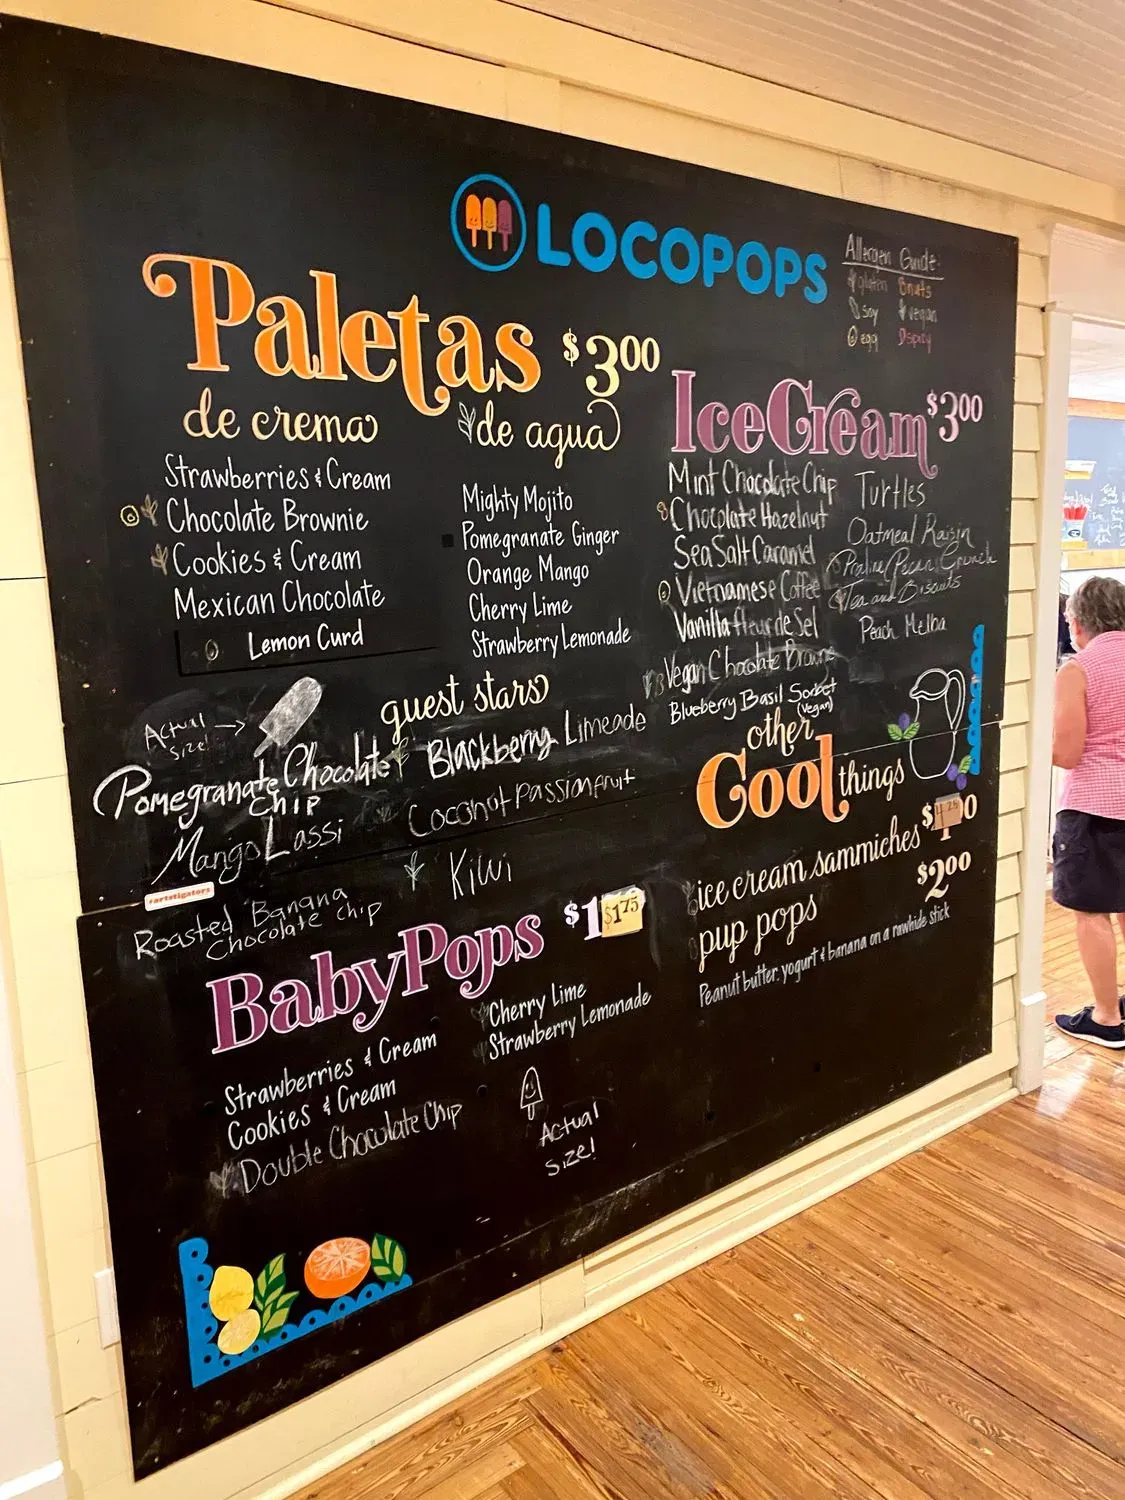 LOCOPOPS
Allergen Guide:
gluten nuts
soy vegan
egg spicy
Paletas $3.00
de crema
Strawberries & Cream
Chocolate Brownie
Cookies & Cream
Mexican Chocolate
Lemon Curd
de agua
Mighty Mojito
Pomegranate Ginger
Orange Mango
Cherry Lime
Strawberry Lemonade
guest stars
Actual
size!
Pomegranate Chocolate
Chip
Mango Lassi
Roasted Banana
Chocolate chip
Blackberry Limeade
Coconot Passionfruit
Kiwi
#artstigators
Ice Cream $3.00
Mint Chocolate Chip
Chocolate Hazelnut
Sea Salt Caramel
Vietnamese Coffee
Vanilla fleur de Sel
Vegan Chocolate Brownie
Blueberry Basil Sorbet
(Vegan)
Turtles
Oatmeal Raisin
Praline/Pecan Crunch
Tea and Biscuits
Peach Melba
other
Cool things
ice cream sammiches
pup pops $2.00
Peanut butter, yogurt & banana on a rawhide stick
BabyPops $1.75
Strawberries & Cream
Cookies & Cream
Double Chocolate Chip
Cherry Lime
Strawberry Lemonade
Actual
size!